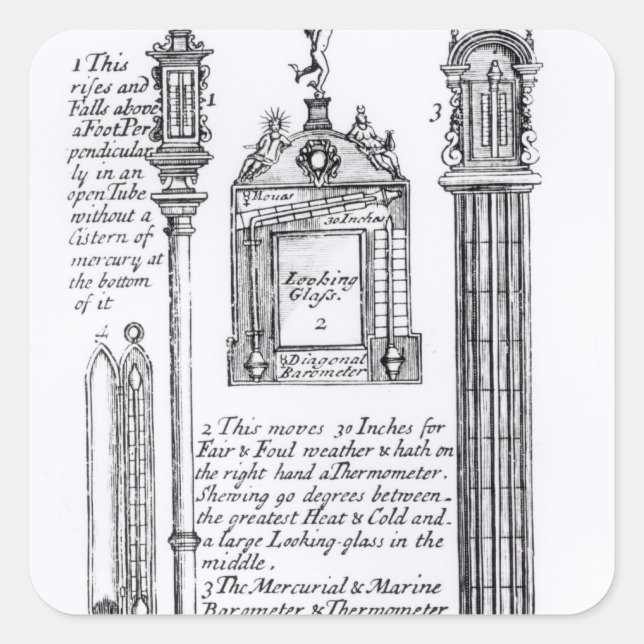 1 This
rises and
Falls above
a Foot Per
pendicular
ly in an
open Tube
without a
Cistern of
mercury at
the bottom
of it
1
3
30 Inches
Looking
Glass.
2
& Diagonal
Barometer
4
2 This moves 30 Inches for
Fair & Foul weather & hath on
the right hand a Thermometer.
Shewing 90 degrees between
the greatest Heat & Cold and
a large Looking-glass in the
middle,
3 The Mercurial & Marine
Barometer & Thermometer